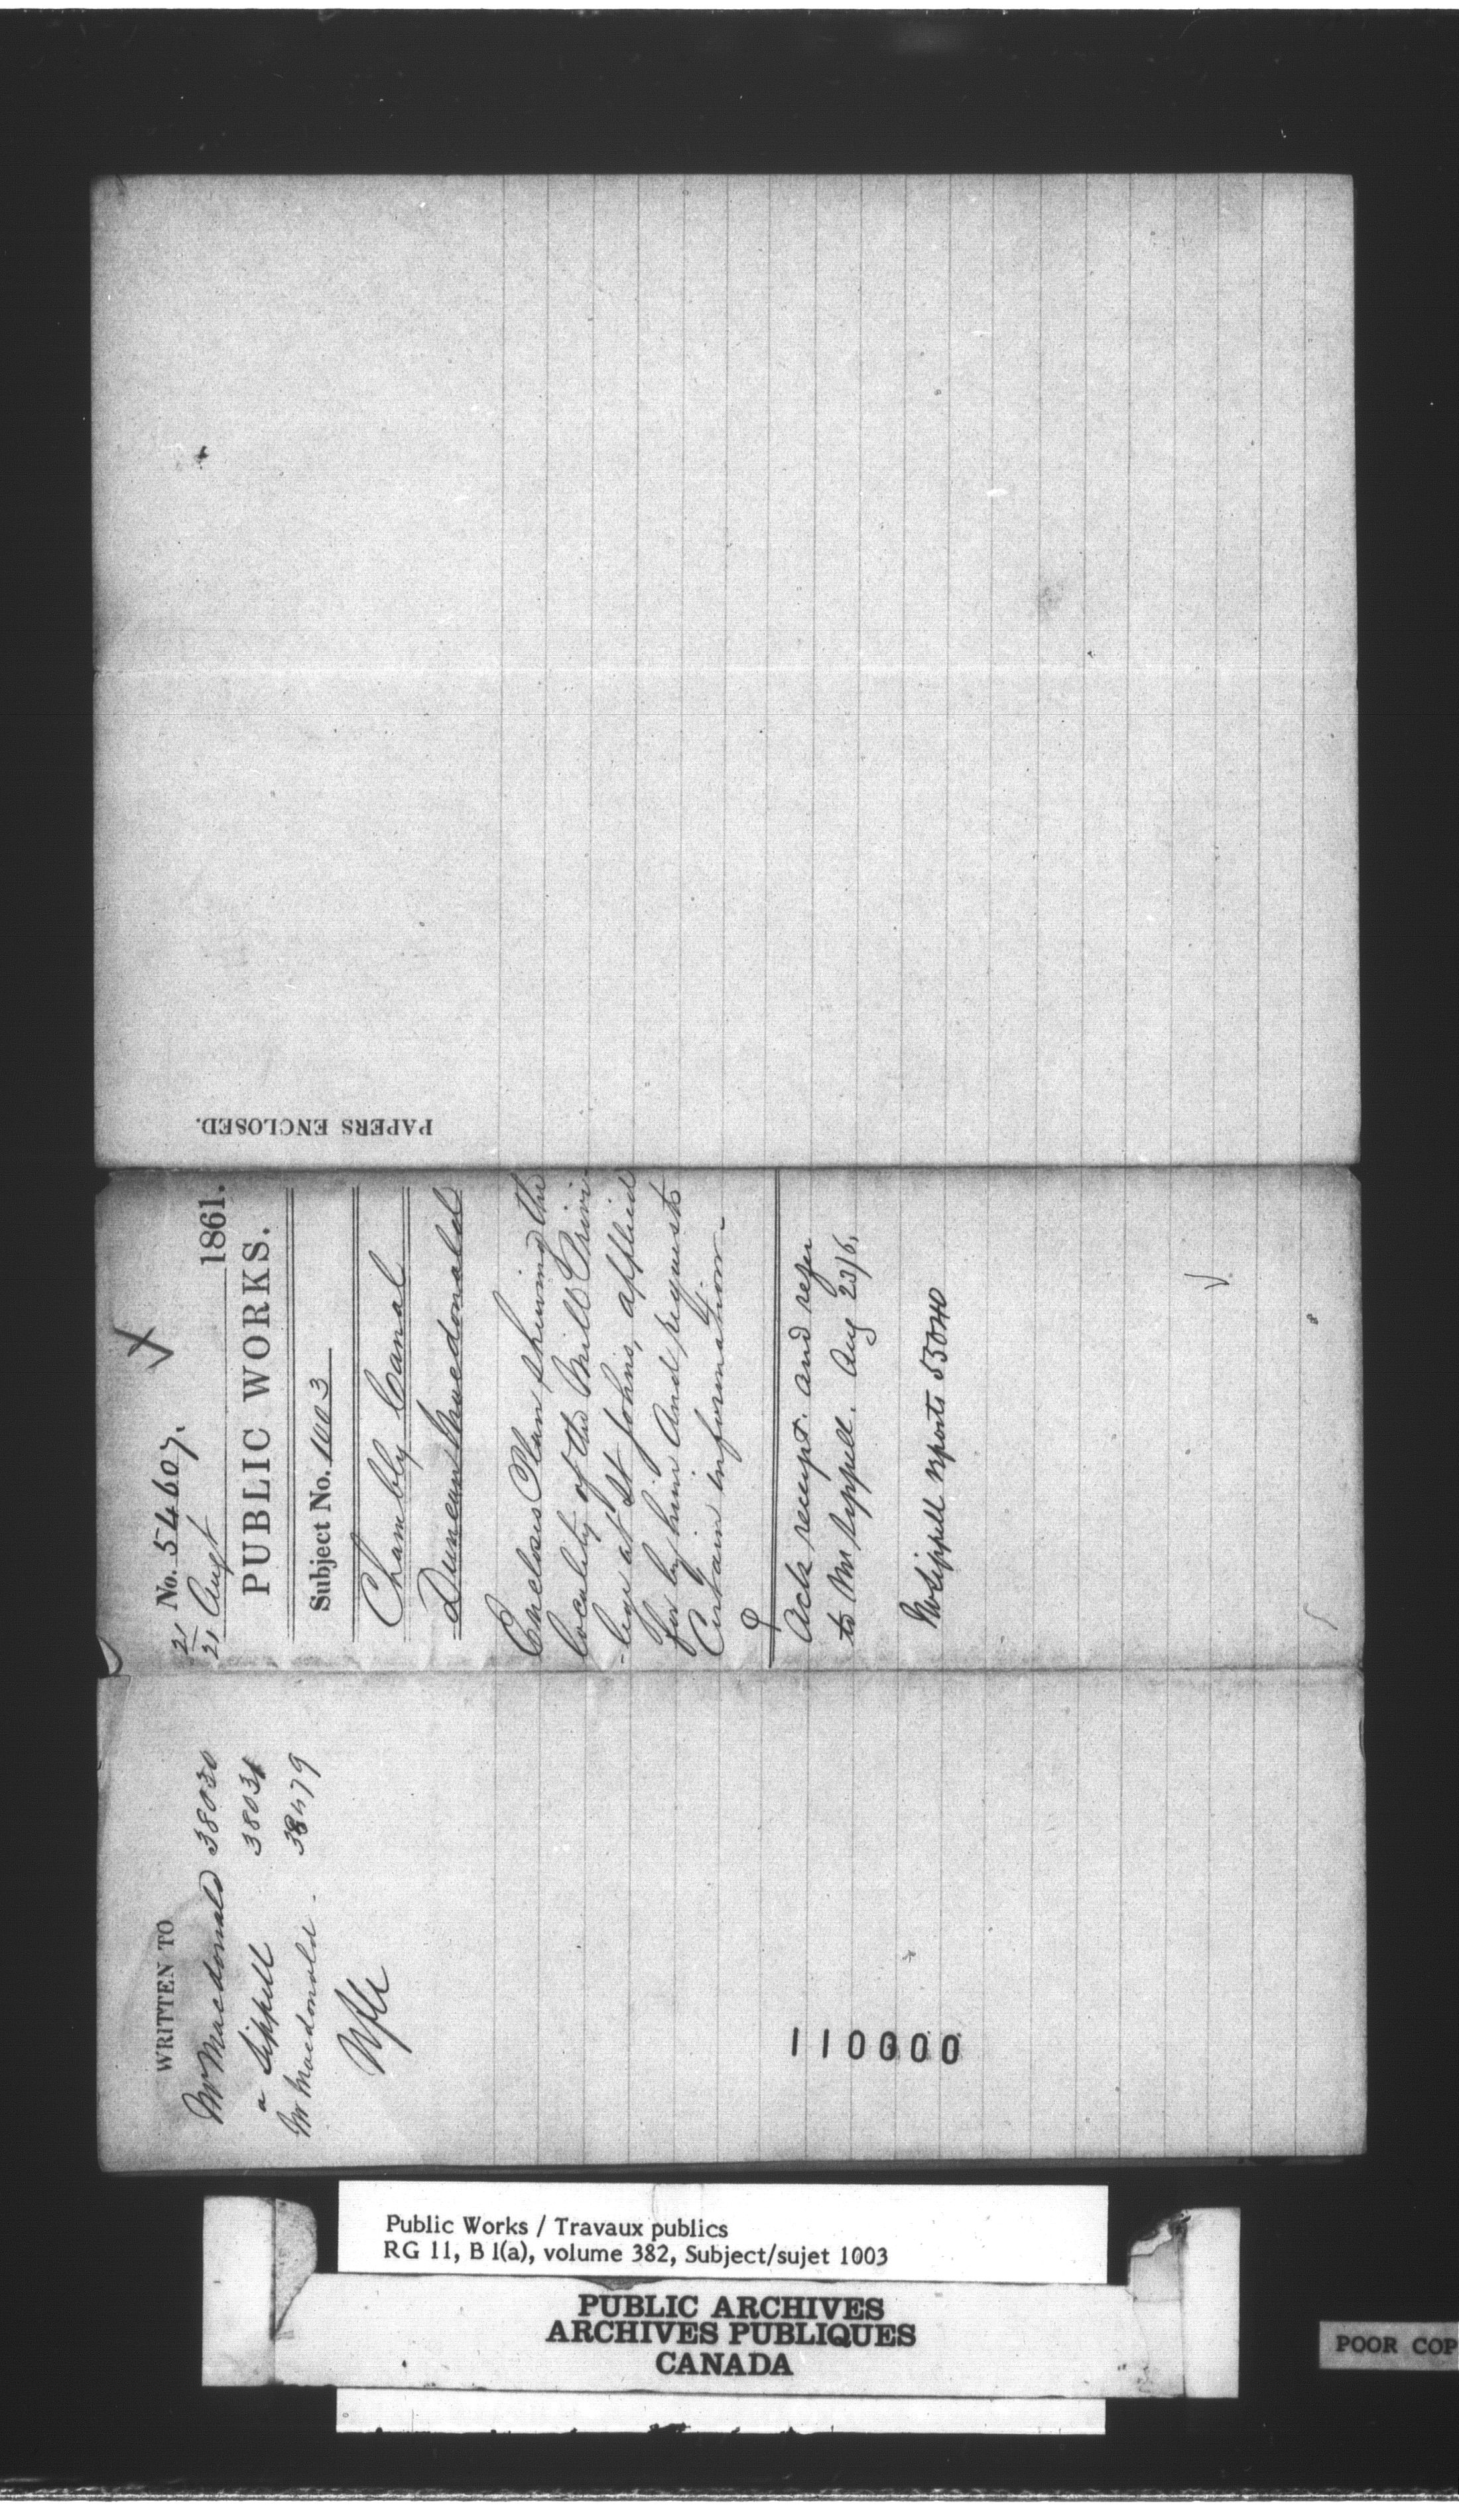 PAPERS ENCLOSED.
No. 54607.
21/21 Augt 1861.
PUBLIC WORKS.
Subject No. 1003
Chambly Canal
Duncan Macdonald
Encloses Plan shewing the
locality of the Mill Privi
-lege at St Johns, applied
for by him And requests
Certain information.
Ack receipt. and refer
to Mr Sippell. Aug 23/6.
Mr Sippell reports 55040
WRITTEN TO
Mr Macdonald 38030
" Sippell 38031
Mr Macdonald. 38479
110000
Public Works / Travaux publics
RG 11, B 1(a), volume 382, Subject/sujet 1003
PUBLIC ARCHIVES
ARCHIVES PUBLIQUES
CANADA
POOR COP